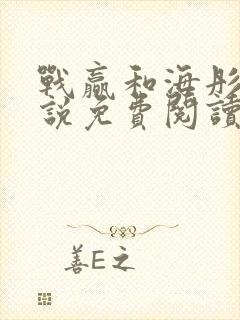 戰贏和海彤
說免費閱讀
善E之